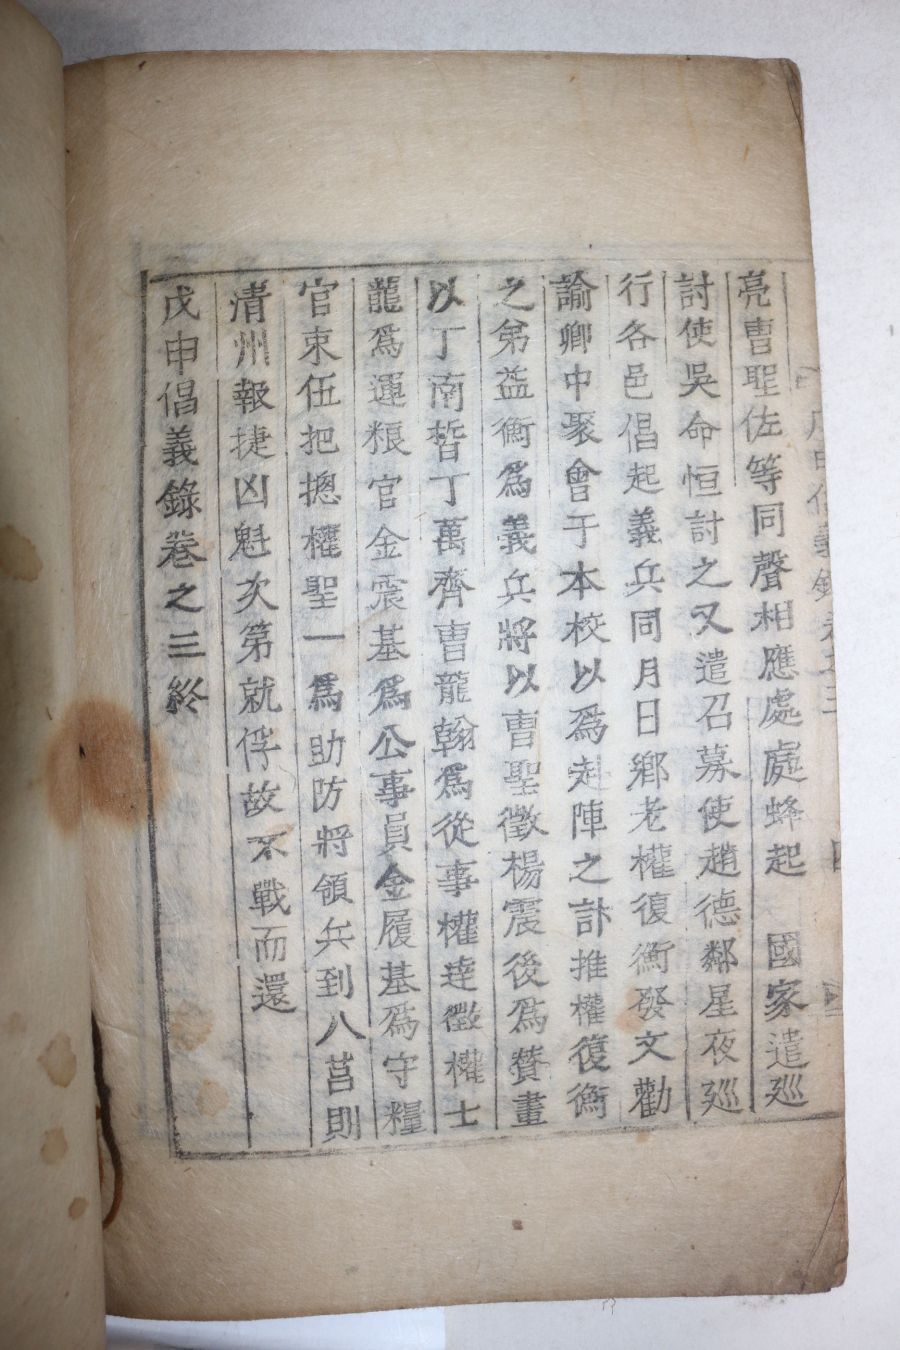 亮曺聖佐等同聲相應處處蜂起 國家遣廵
討使吳命恒討之又遣召募使趙德鄰星夜廵
行各邑倡起義兵同月日鄕老權復衡發文勸
諭鄕中聚會于本校以爲赴陣之計推權復衡
之弟益衡爲義兵將以曺聖徵楊震後爲贊畫
以丁南晳丁萬齊曺龍翰爲從事權達徵權士
龍爲運粮官金震基爲公事員金履基爲守糧
官束伍把摠權聖一爲助防將領兵到八莒則
淸州報捷凶魁次第就俘故不戰而還
戊申倡義錄卷之三終